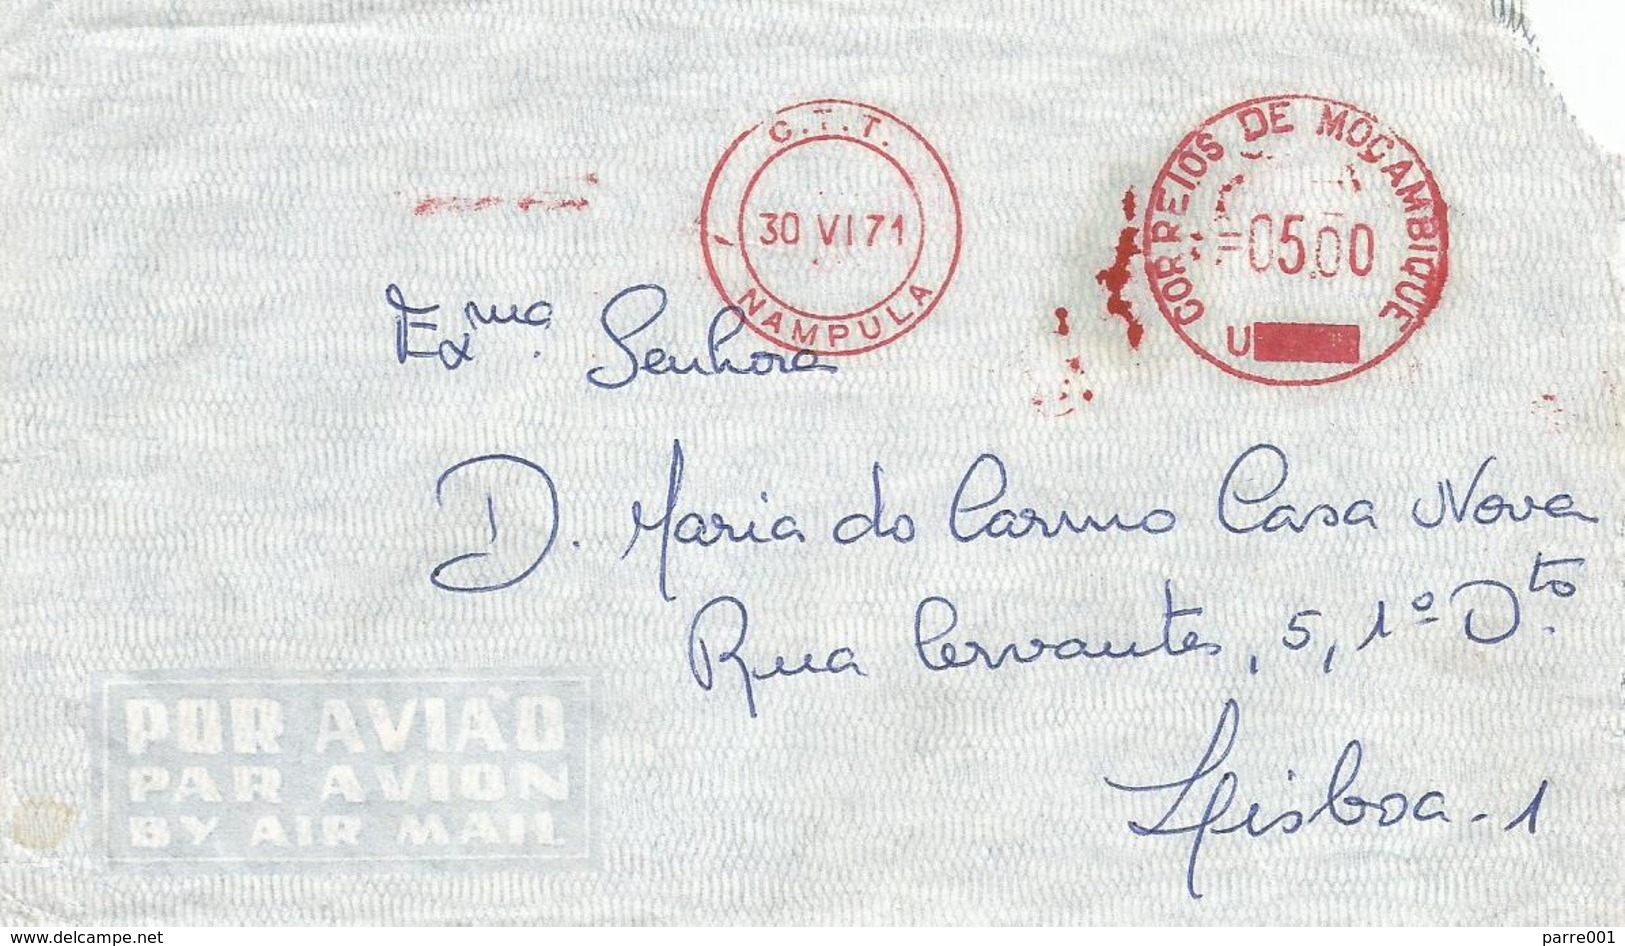 C.T.T.
30 VI 71
NAMPULA
CORREIOS DE MOÇAMBIQUE
=0500
U
Exma. Senhora
D. Maria do Carmo Casa Nova
Rua Cervantes, 5, 1º Dto.
Lisboa - 1
POR AVIÃO
PAR AVION
BY AIR MAIL
www.delcampe.net
parre001